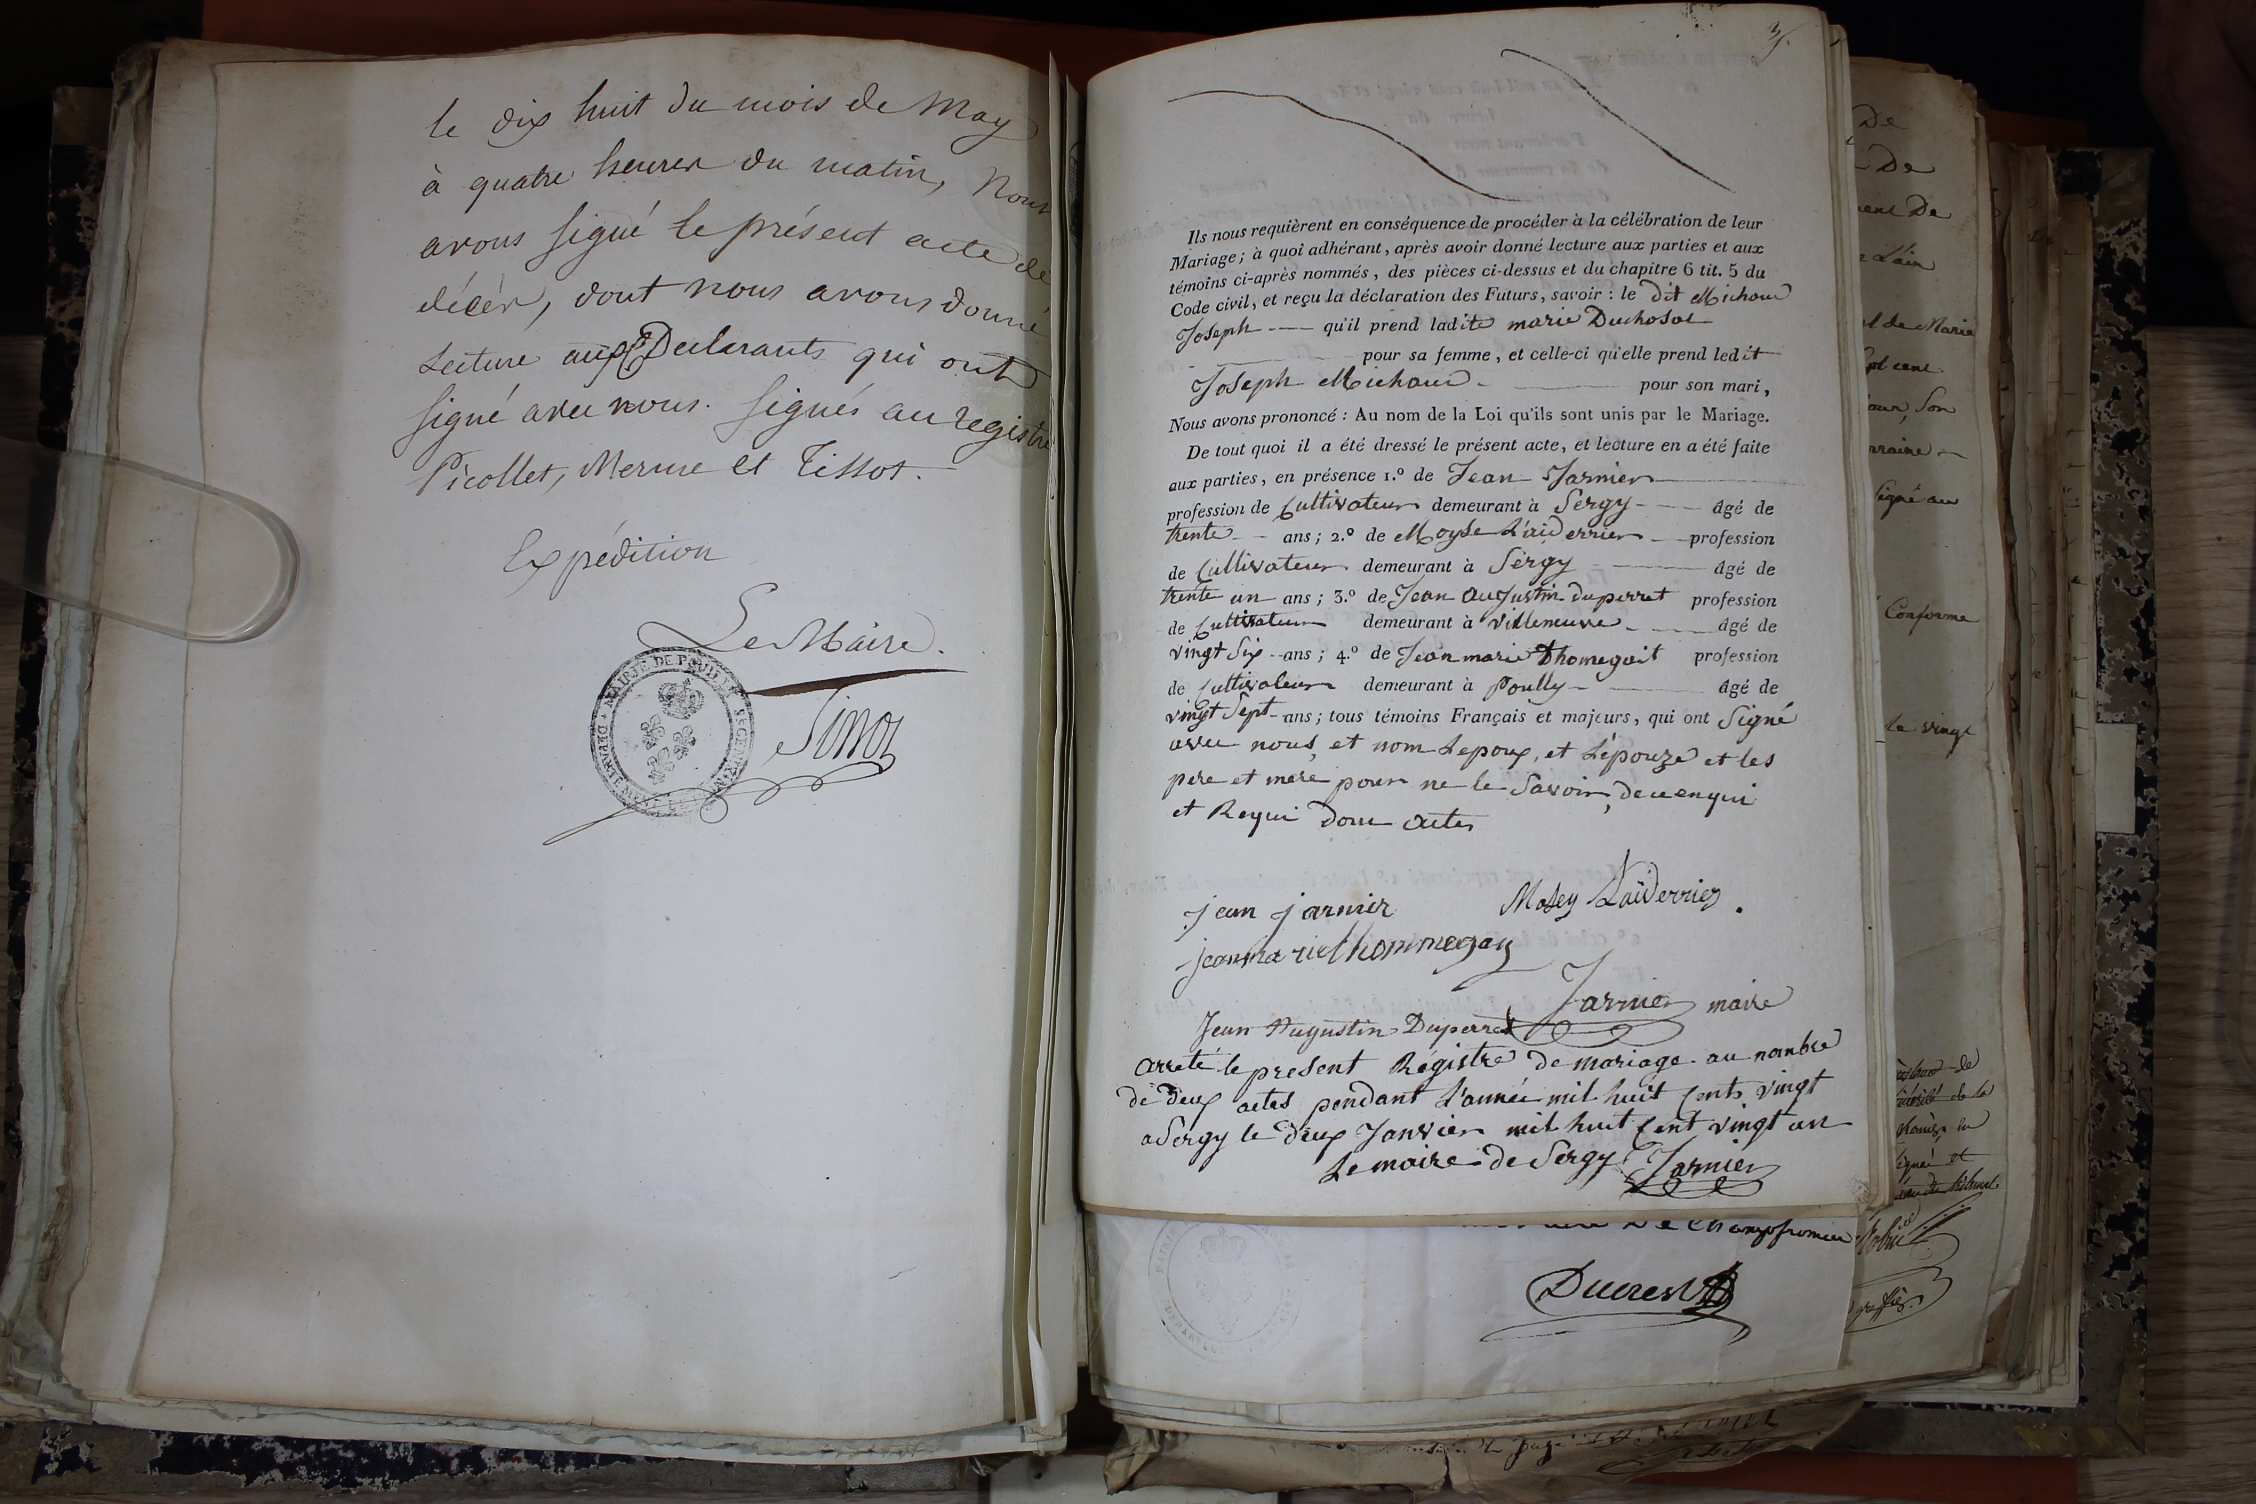 le dix huit du mois de May
à quatre heures du matin, Nous
avons signé le présent acte de
décès, dont nous avons donné
Lecture aux Declarants qui ont
signé avec nous. Signés au registre
Picollet, Mermé et Tissot.
Expédition
Le Maire.
MAIRIE DE POUILLY
Tissot
3.
Ils nous requièrent en conséquence de procéder à la célébration de leur
Mariage; à quoi adhérant, après avoir donné lecture aux parties et aux
témoins ci-après nommés, des pièces ci-dessus et du chapitre 6 tit. 5 du
Code civil, et reçu la déclaration des Futurs, savoir : le dit Michaud
Joseph qu'il prend ladite marie Duchosal
pour sa femme, et celle-ci qu'elle prend ledit
Joseph Michaud pour son mari,
Nous avons prononcé : Au nom de la Loi qu'ils sont unis par le Mariage.
De tout quoi il a été dressé le présent acte, et lecture en a été faite
aux parties, en présence 1.º de Jean Jarnier
profession de Cultivateur demeurant à Sergy âgé de
trente ans; 2.º de Moyse Laiderrier profession
de Cultivateur demeurant à Sergy âgé de
trente un ans; 3.º de Jean Augustin duperret profession
de Cultivateur demeurant à villeneuve âgé de
vingt Six ans; 4.º de Jean marie Thomegait profession
de Cultivateur demeurant à Poully âgé de
vingt Sept ans; tous témoins Français et majeurs, qui ont Signé
avec nous, et nom Lepoux, et L'épouze et les
pere et mere pour ne le Savoir, de ce enqui
et Requi donc actes
jean jarnier
Mosey Laiderrier.
jeanmarie thommegay
Jarnier maire
Jean Augustin Duperret
arreté le present Régistre de mariage au nombre
de deux actes pendant L'année mil huit Cents vingt
a Sergy le deux Janvier mil huit Cent vingt un
Le maire de Sergy Jarnier
De Champfromier
Ducrest
De
De
ent De
L'ain
de Marie
cent
jour, Son
Signé au
Conforme
le vingt
de
de la
et